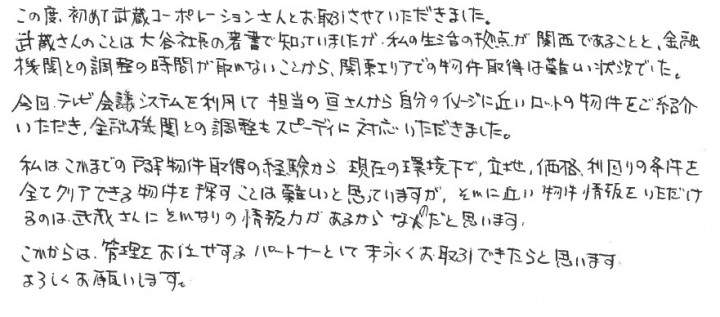 この度、初めて武蔵コーポレーションさんとお取引させていただきました。
武蔵さんのことは大谷社長の著書で知っていましたが、私の生活の拠点が関西であることと、金融
機関との調整の時間が取れないことから、関東エリアでの物件取得は難しい状況でした。
今回、テレビ会議システムを利用して担当の亘さんから自分のイメージに近いロットの物件をご紹介
いただき、金融機関との調整もスピーディに対応いただきました。
私はこれまでの戸建物件取得の経験から、現在の環境下で、立地、価格、利回りの条件を
全てクリアできる物件を探すことは難しいと思っていますが、それに近い物件情報をいただけ
るのは、武蔵さんにそれなりの情報力があるからなのだと思います。
これからは、管理をお任せするパートナーとして末永くお取引できたらと思います。
よろしくお願いします。